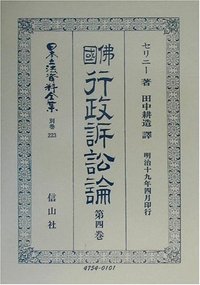 日本立法資料全集
別巻
223
佛國
行政訴訟論
第四巻
セリニー 著
田中耕造 譯
明治十九年四月印行
信山社
4754-0101